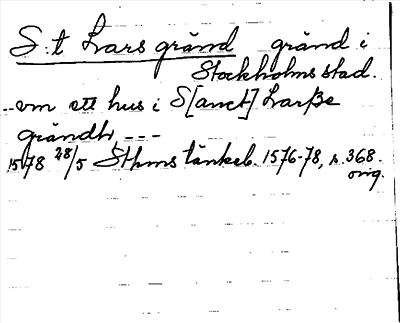 S:t Lars gränd gränd i
Stockholms stad.
.. om ett hus i S[anct] Larße
grändh, ---
1578 28/5 Sthms tänkeb. 1576-78, s. 368.
orig.